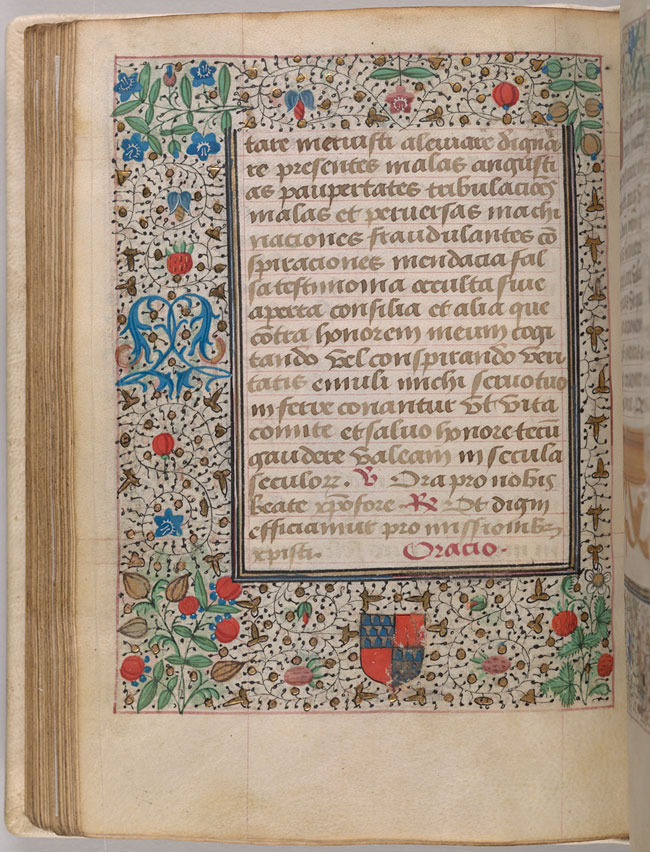 tare meruisti aleuiare digna
re presentes malas angusti
as paupertates tribulacōes
malas et peruersas machi
naciones fraudulantes cō
spiraciones mendacia fal
sa testimonia occulta siue
aperta consilia et alia que
cōtra honorem meum cogi
tando vel conspirando veri
tatis emuli michi seruo tuo
inferre conantur vt vita
comite et saluo honore tecū
gaudere valeam in secula
seculorꝝ. ℣ Ora pro nobis
beate xp̄ofore ℟ Vt digni
efficiamur promissionibꝫ
xpisti. Oracio